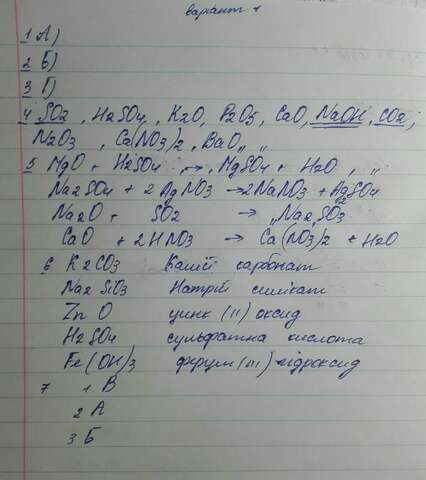 варіант 1
1 А)
2 Б)
3 Г)
4 SO2 , H2SO4 , K2O , P2O5 , CaO, NaOH, CO2,
N2O3 , Ca(NO3)2 , BaO
5 MgO + H2SO4 → MgSO4 + H2O
Na2SO4 + 2AgNO3 → 2NaNO3 + Ag2SO4
Na2O + SO2 → Na2SO3
CaO + 2HNO3 → Ca(NO3)2 + H2O
6 K2CO3 Калій карбонат
Na2SiO3 Натрій силікат
ZnO цинк (II) оксид
H2SO4 сульфатна кислота
Fe(OH)3 ферум (III) гідроксид
7 1 В
2 А
3 Б